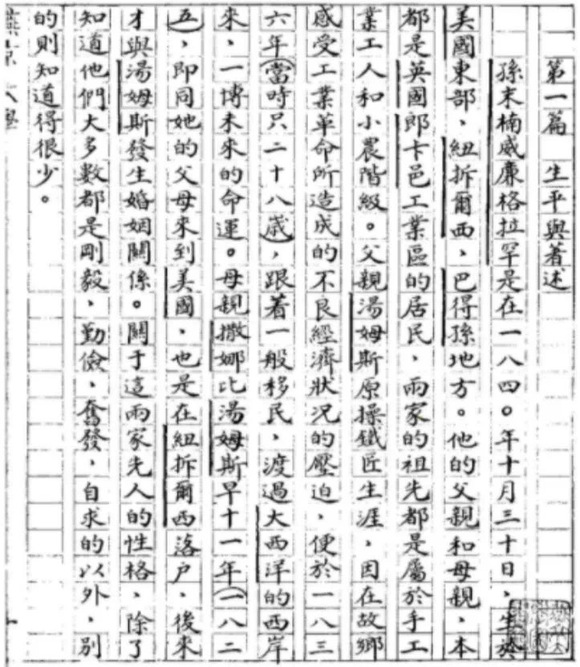 第一篇　生平與著述
孫末楠威廉格拉罕是在一八四〇年十月三十日，生於
美國東部、紐拆爾西、巴得孫地方。他的父親和母親，本
都是英國郎卡邑工業區的居民，兩家的祖先都是屬於手工
業工人和小農階級。父親湯姆斯原操鐵匠生涯，因在故鄉
感受工業革命所造成的不良經濟狀況的壓迫，便於一八三
六年（當時只二十八歲），跟着一般移民，渡過大西洋的西岸
來，一博未來的命運。母親撒娜比湯姆斯早十一年（一八二
五），即同她的父母來到美國，也是在紐拆爾西落户，後來
才與湯姆斯發生婚姻關係。關于這兩家先人的性格，除了
知道他們大多數都是剛毅、勤儉、奮發、自求的以外，別
的則知道得很少。